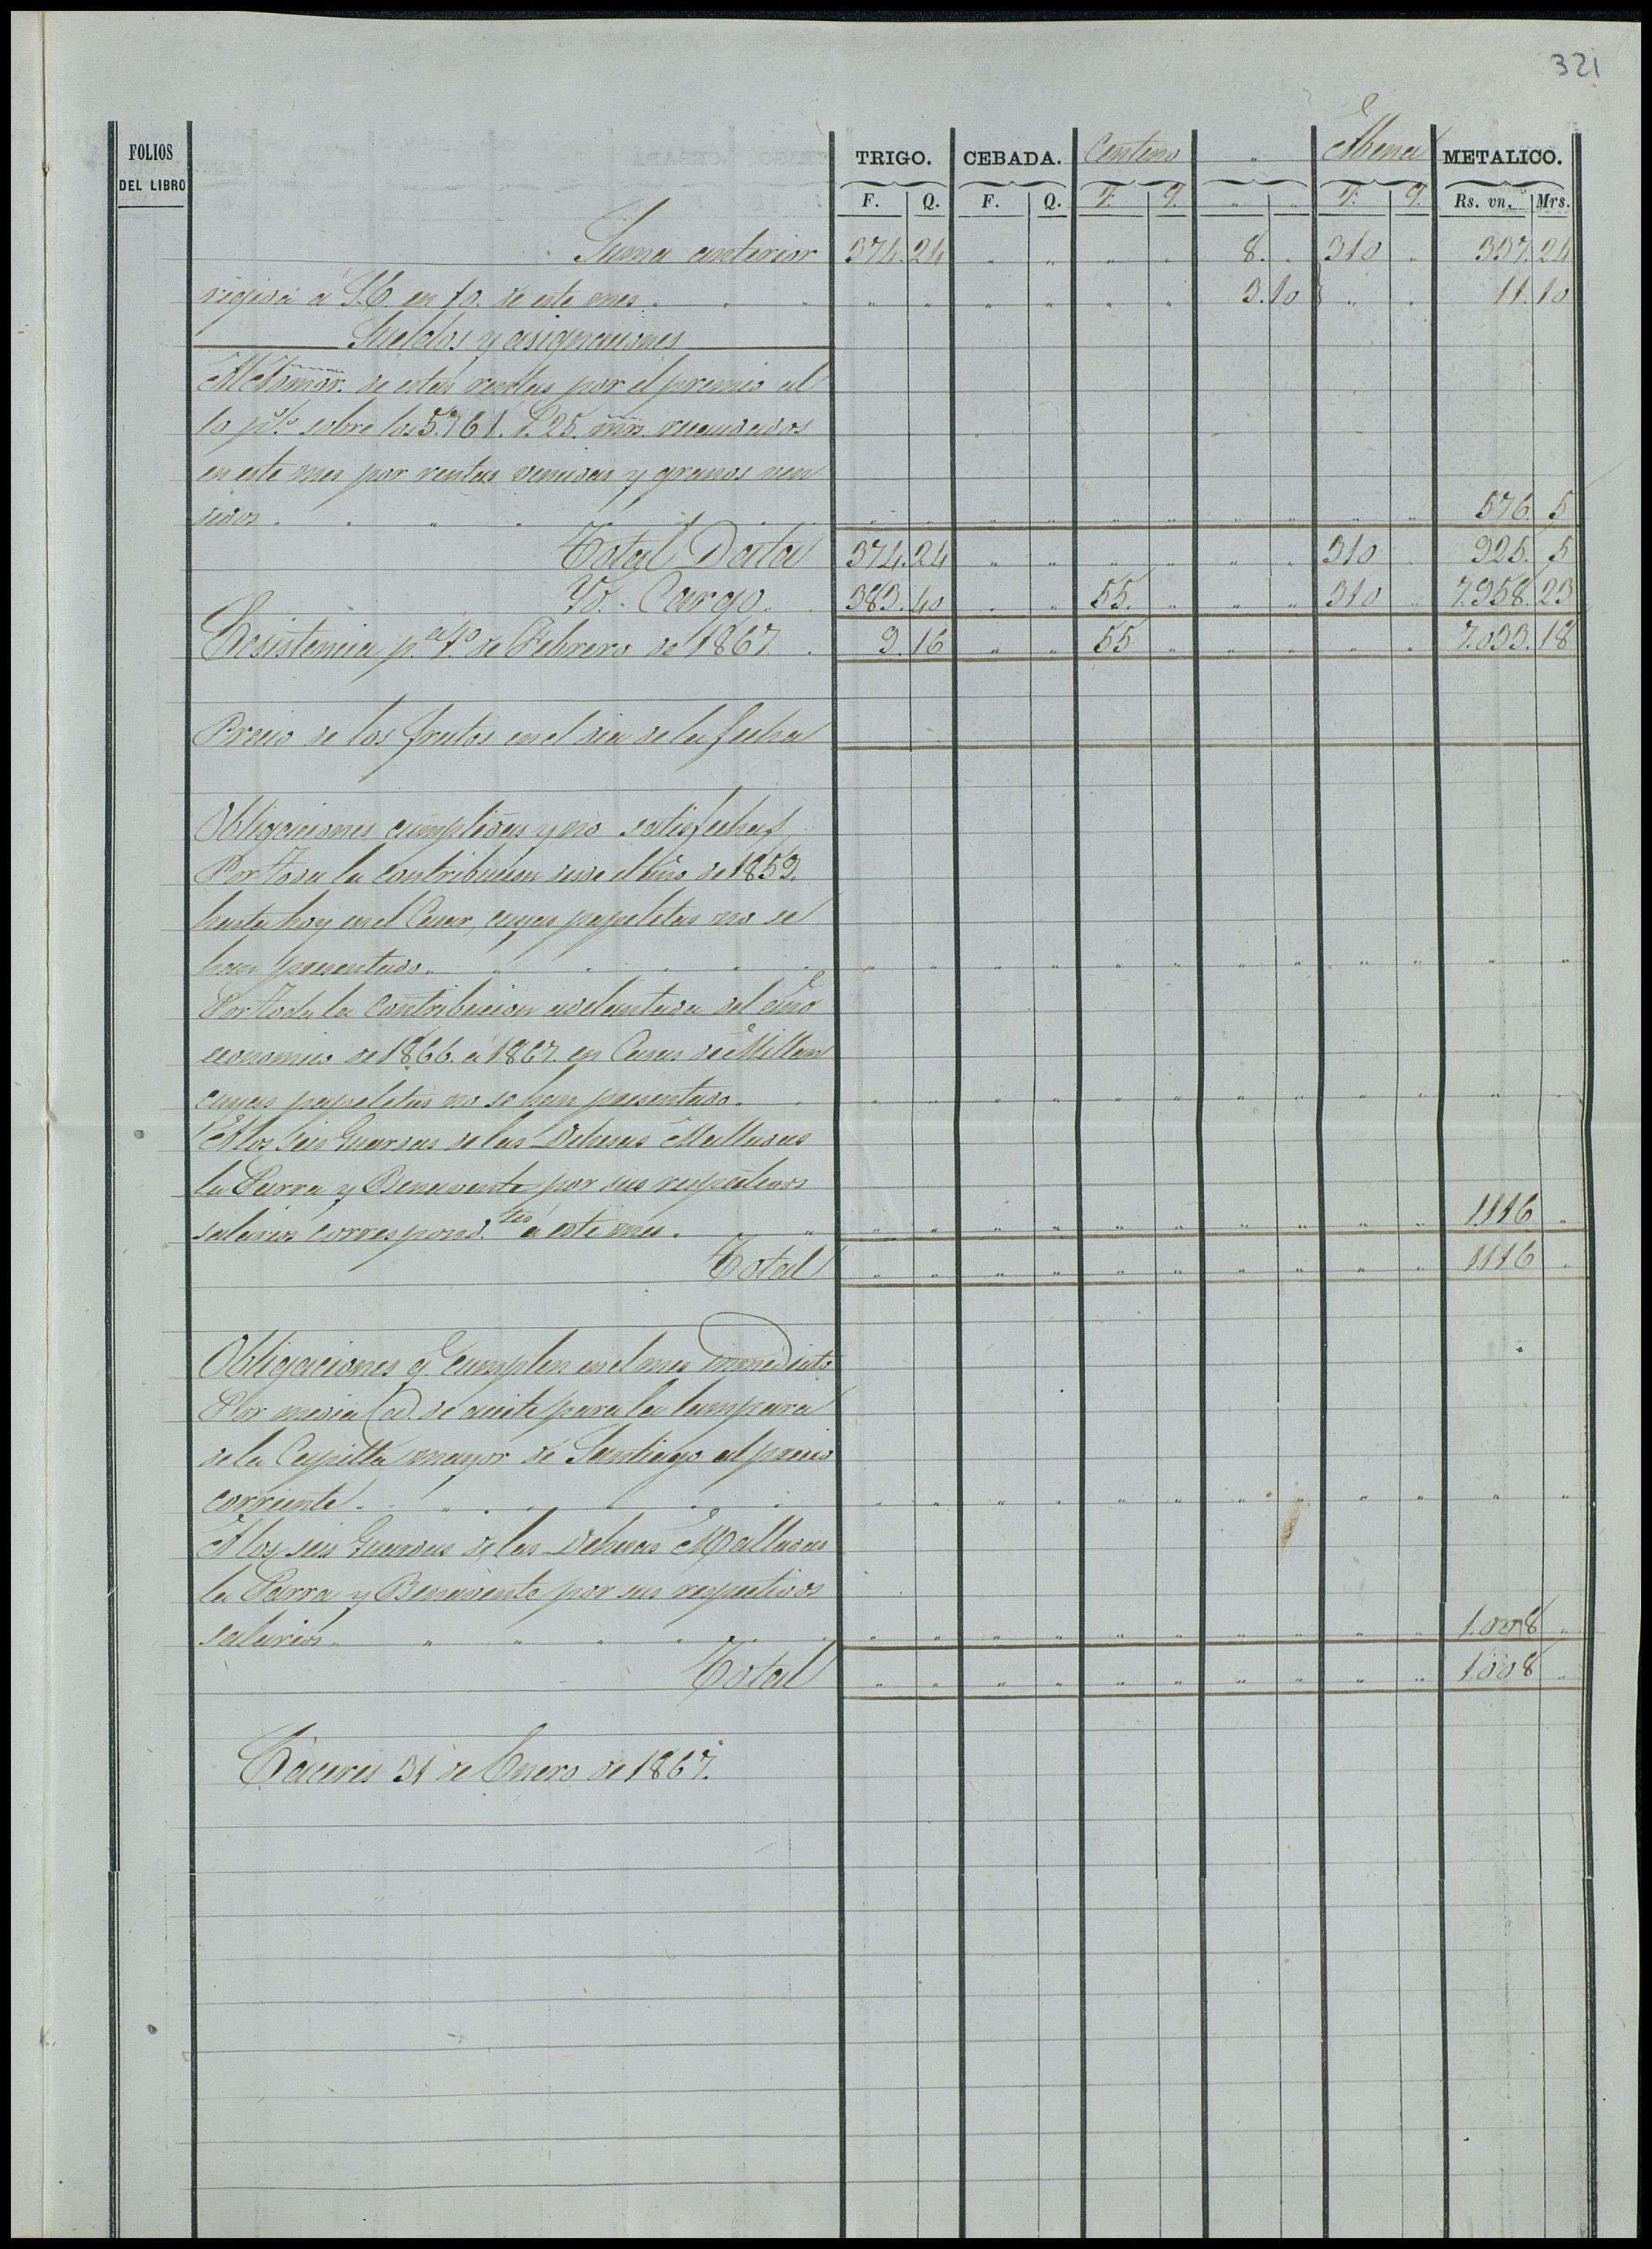 321
FOLIOS DEL LIBRO
TRIGO. CEBADA. Centeno " Abena METALICO.
F. Q. F. Q. F. Q. " " F. Q. Rs. vn. Mrs.
Suma anterior 374. 24 " " " " 8. " 310 " 337. 24
rigida á S.E. en 10. de este mes. " " " " " " 3. 10 " " 11. 10
Sueldos y asignaciones
Al Admor. de estas rentas por el premio al
10 p% sobre los 5.761. r. 25. mrs. recaudados
en este mes por rentas venidas y granos ven
didos. " " " " " " " " " " 576. 5
Total Data 374. 24 " " " " " " 310 " 925. 5
Yd. Cargo. 383. 40 " " 55. " " " 310 " 7.958. 23
Existencia p.a 1.o de Febrero de 1867. 9. 16 " " 55 " " " " " 7.033. 18
Precio de los frutos en el dia de la fecha
Obligaciones cumplidas y no satisfechas
Por toda la contribucion desde el año de 1859.
hasta hoy en el Casar, cuyas papeletas no se
han presentado. " " " " " " " " " " " "
Por toda la contribucion adelantada del año
economico de 1866. á 1867. en Casas de Millan
cuyas papeletas no se han presentado. " " " " " " " " " " " "
A los seis Guardas de las Dehesas Malladas
la Parra y Benavente por sus respectivos
salarios correspond.tes á este mes. " " " " " " " " " " 1.116 "
Total " " " " " " " " " " 1.116 "
Obligaciones q.e cumplen en el mes inmediato
Por media @. de aceite para la lampara
de la Capilla mayor de Santiago al precio
corriente. " " " " " " " " " " " "
A los seis Guardas de las Dehesas Malladas
la Parra y Benavente por sus respectivos
salarios. " " " " " " " " " " 1.008 "
Total " " " " " " " " " " 1.008 "
Cáceres 31 de Enero de 1867.